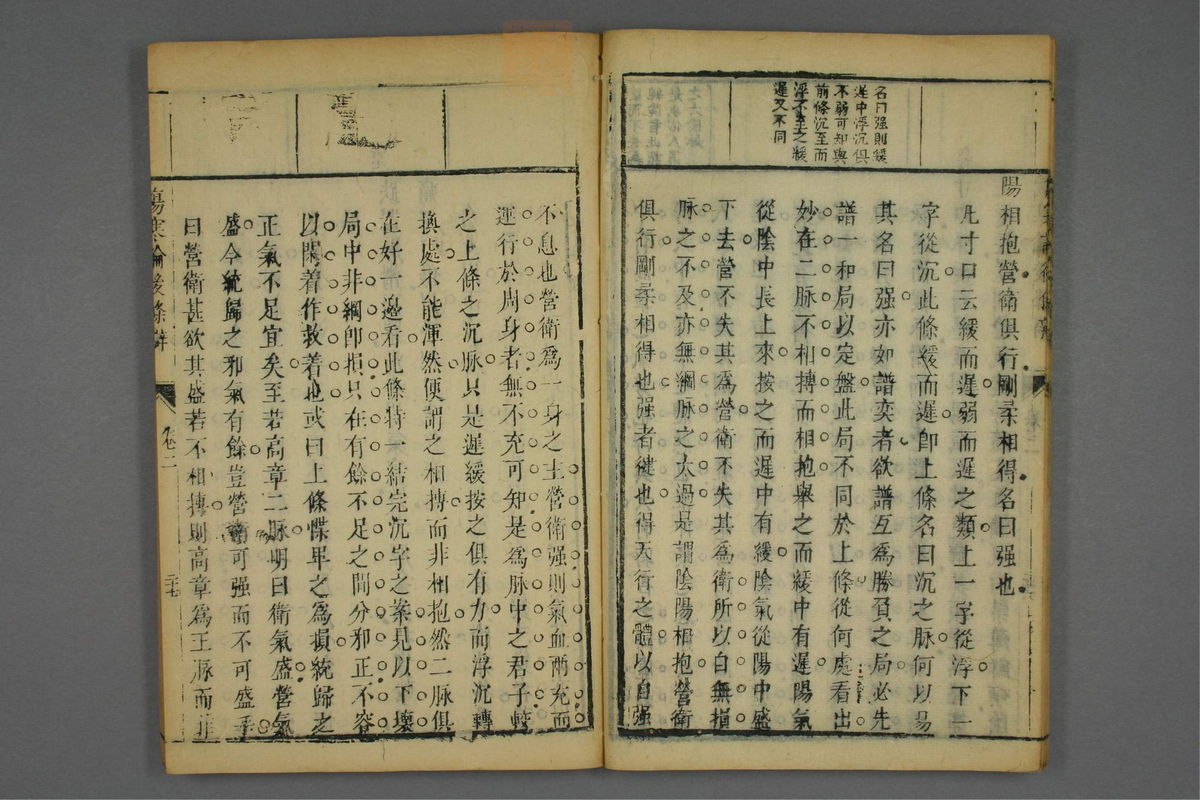 名曰强則緩
遲中浮沉俱
不弱可知與
前條沉至而
浮不至之緩
遲又不同
陽相抱營衛俱行剛柔相得名曰强也
凡寸口云緩而遲弱而遲之類上一字從浮下一
字從沉此條緩而遲卽上條名曰沉之脉何以易
其名曰强亦如譜奕者欲譜互為勝負之局必先
譜一和局以定盤此局不同於上條從何處看出
妙在二脉不相搏而相抱舉之而緩中有遲陽氣
從陰中長上來按之而遲中有緩陰氣從陽中盛
下去營不失其為營衛不失其為衛所以白無損
脉之不及亦無綱脉之太過是謂陰陽相抱營衛
俱行剛柔相得也强者健也得天行之體以自强
不息也營衛為一身之主營衛强則氣血兩充而
運行於周身者無不充可知是為脉中之君子較
之上條之沉脉只是遲緩按之俱有力而浮沉轉
換處不能渾然便謂之相搏而非相抱然二脉俱
在好一邊看此條特一結完沉字之案見以下壞
局中非綱卽損只在有餘不足之間分邪正不容
以閑着作救着也或曰上條惵卑之為損統歸之
正氣不足宜矣至若高章二脉明曰衛氣盛營氣
盛今統歸之邪氣有餘豈營衛可强而不可盛乎
曰營衛甚欲其盛若不相搏則高章為王脉而非
傷寒論後條辨
卷二
二十七